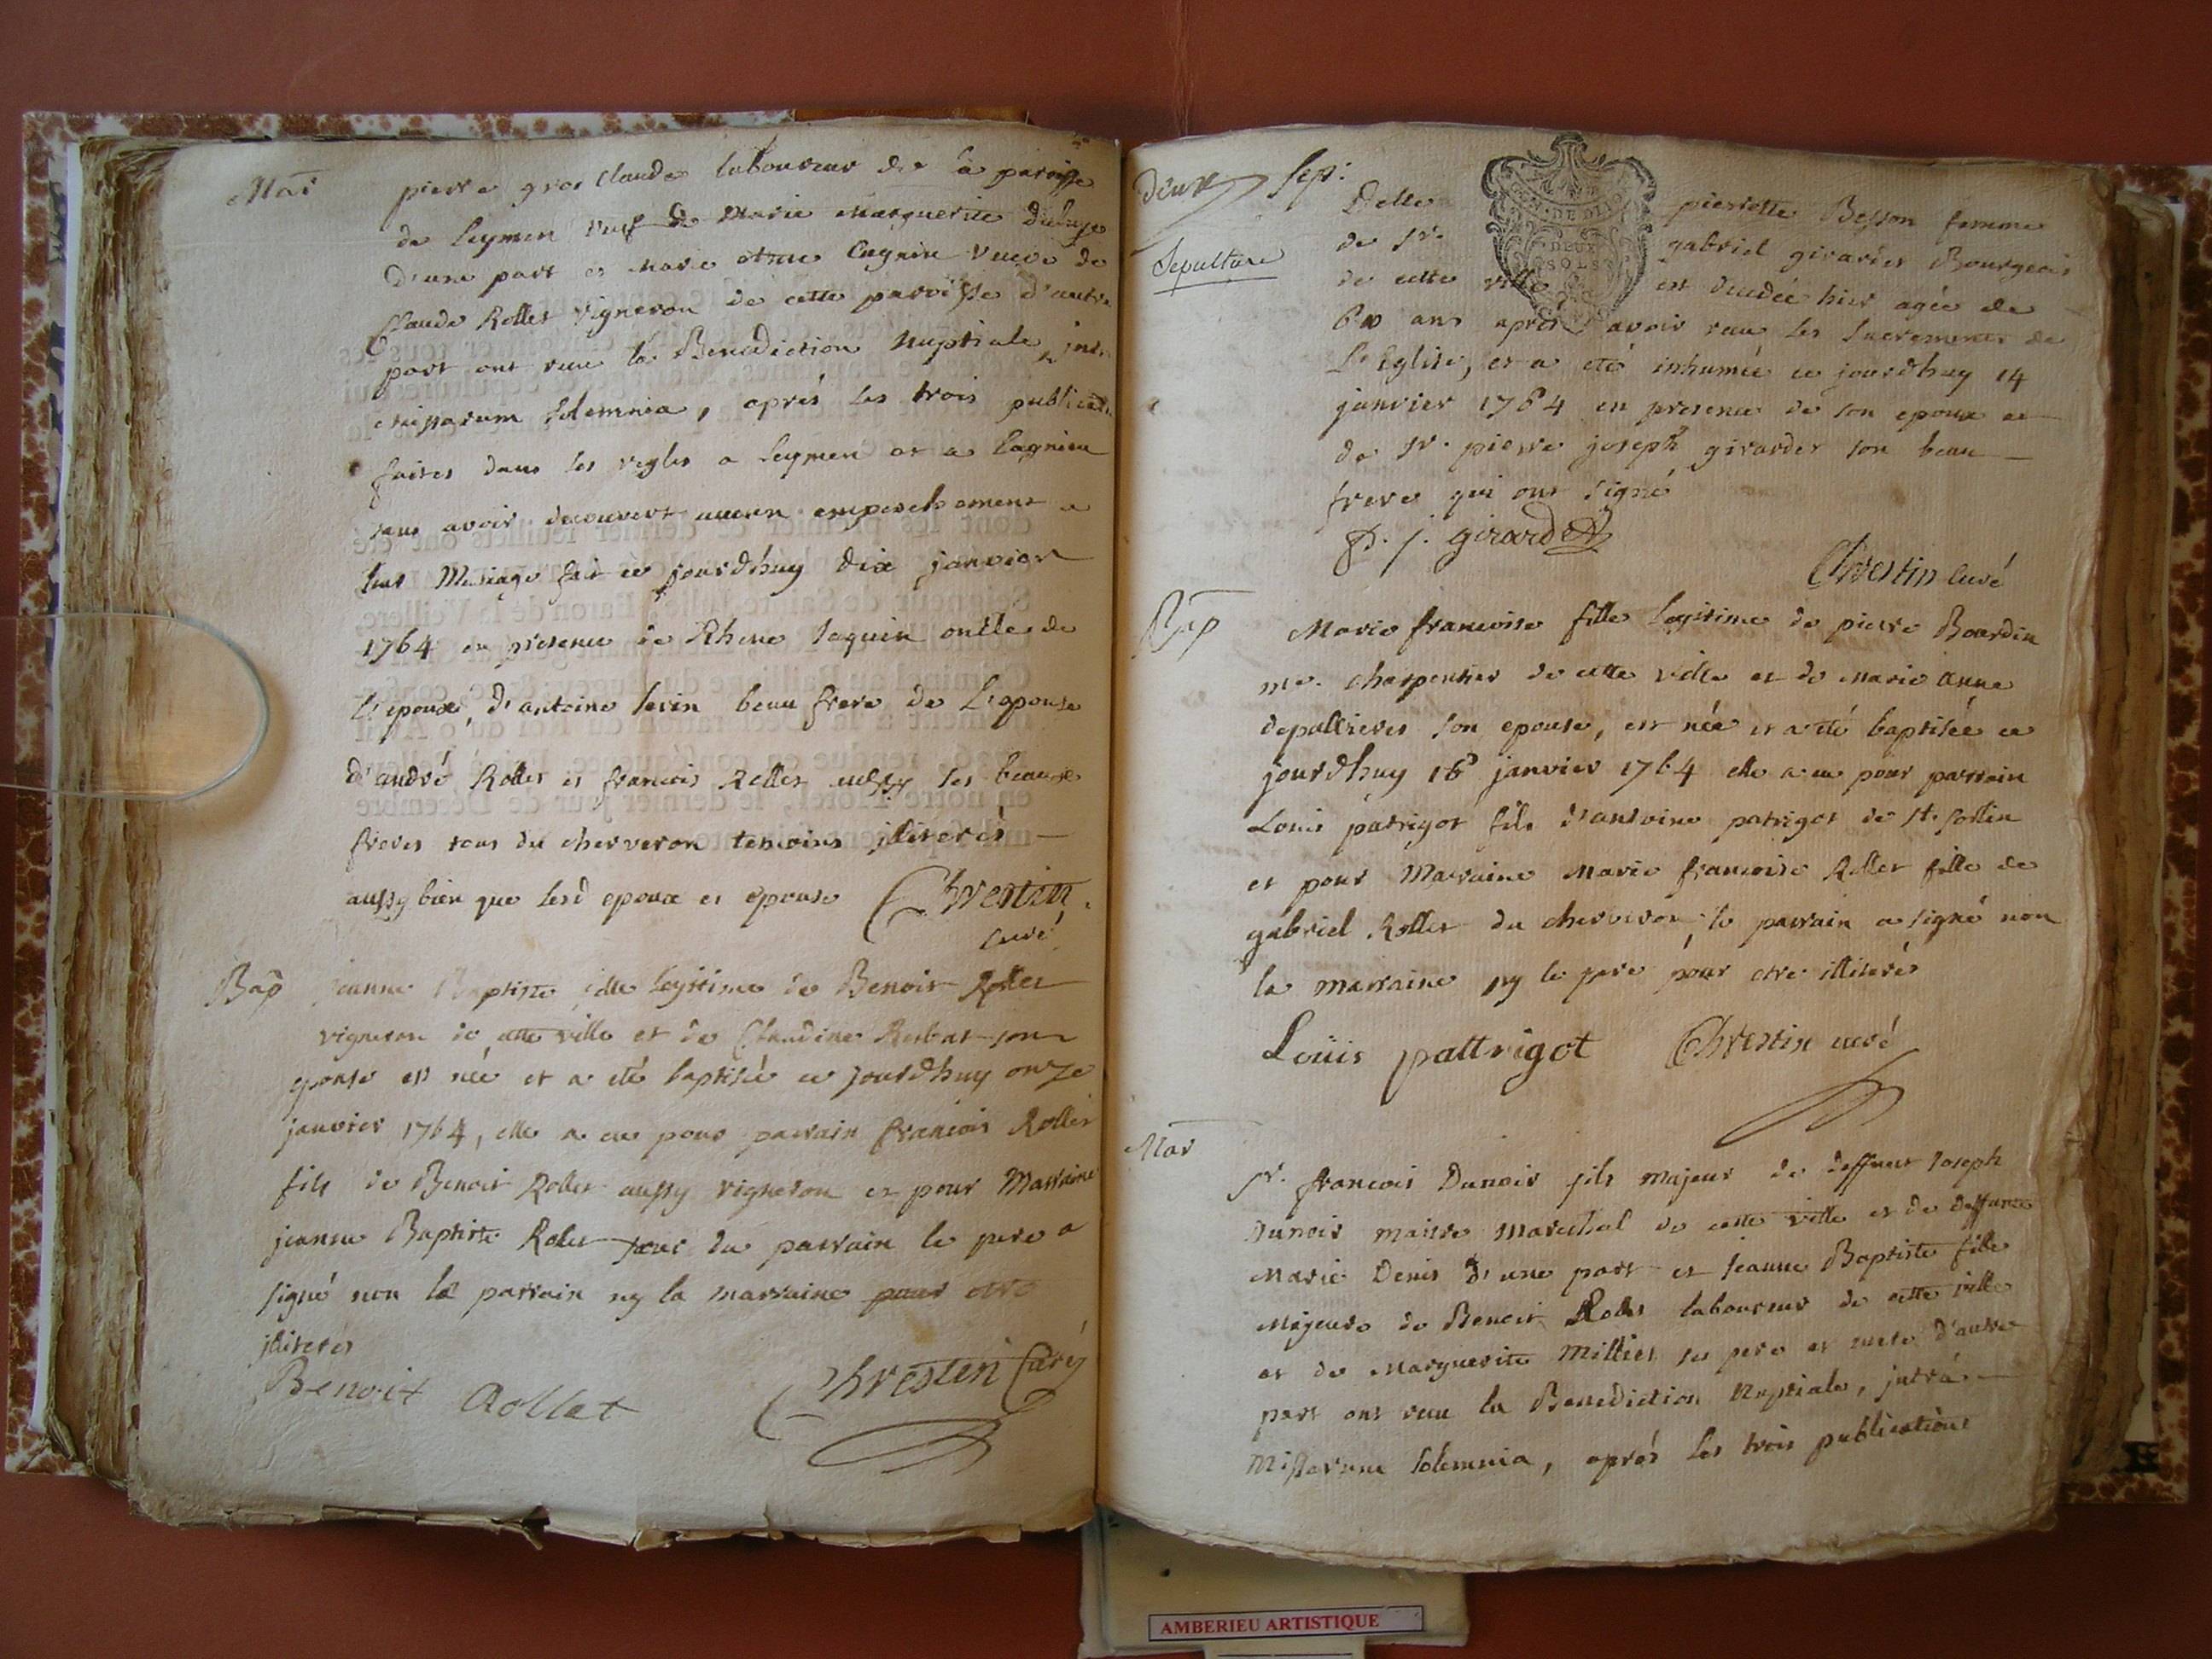 Mar
pierre gros Claude laboureur de la paroisse
de leymen veuf de Marie Marguerite
D'une part et Marie Anne Cagnin veuve de
Claude Rollet vigneron de cette paroisse d'autre
part ont recu la Benediction Nuptiale
missarum solemnia, aprés les trois
faites dans les regles a leymen et a lagnieu
sans avoir decouvert aucun empeschement a
leur Mariage fait ce jourdhuy dix janvier
1764 en presence de Jaquin oncle de
L'epoux, d'antoine beau frere de L'epouse
d'andré Rollet et francois Rollet aussy ses beaux
freres tous du cherveron temoins illiterés
aussy bien que lesd epoux et epouse Chrestin
curé
Bap
jeanne Baptiste fille legitime de Benoit Rollet
vigneron de cette ville et de Claudine son
epouse est née et a eté baptisée ce jourdhuy onze
janvier 1764, elle a eu pour parrain francois Rollet
fils de Benoit Rollet aussy vigneron et pour Marraine
jeanne Baptiste Rollet soeur du parrain le pere a
signé non le parrain ny la marraine pour etre
illiterés
Benoit Rollet Chresten Curé
deux
sep:
Sepulture
Delle pierrette Besson femme
de sr. gabriel girardet Bourgeois
de cette ville est decedée hier agée de
ans aprés avoir recu les sacrements de
L'Eglise, et a eté inhumée ce jourdhuy 14
janvier 1764 en presence de son epoux et
de sr. pierre joseph girardet son beau
frere qui ont signé
DEUX
SOLS
P. j. girardet
Chrestin curé
Bap
Marie francoise fille legitime de pierre Bourdin
me. charpentier de cette ville et de marie anne
depallieres son epouse, est née et a eté baptisée ce
jourdhuy 16 janvier 1764 elle a eu pour parrain
Louis patrigot fils d'antoine patrigot de st. sorlin
et pour Marraine Marie francoise Rollet fille de
gabriel Rollet du cherveron, le parrain a signé non
la marraine ny le pere pour etre illiterés
Louis pattrigot Chrestin curé
Mar
sr. francois Dunoir fils majeur de deffunt Joseph
Dunoir maitre marechal de cette ville et de deffunte
Marie Denis d'une part et jeanne Baptiste fille
Majeure de Benoit Rollet laboureur de cette ville
et de Marguerite Milliet ses pere et mere d'autre
part ont recu la Benediction Nuptiale, intrá
Missarum solemnia, aprés les trois publications
AMBERIEU ARTISTIQUE